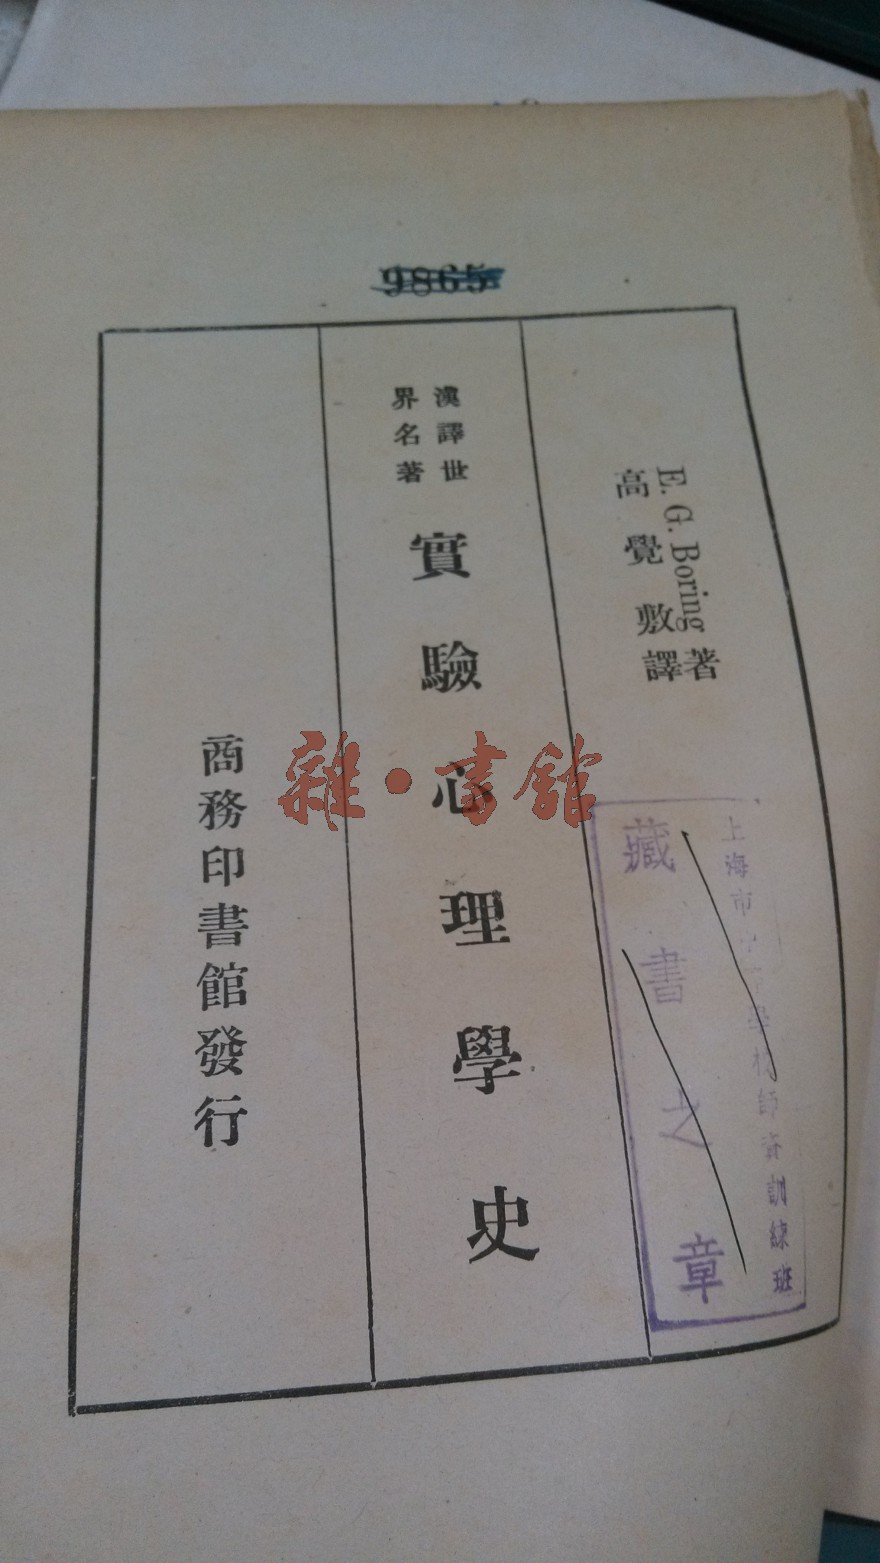 9865
E. G. Boring 著
高覺敷譯
漢譯世
界名著
實驗心理學史
商務印書館發行
上海市中等學校師資訓練班
藏書之章
雜·書館